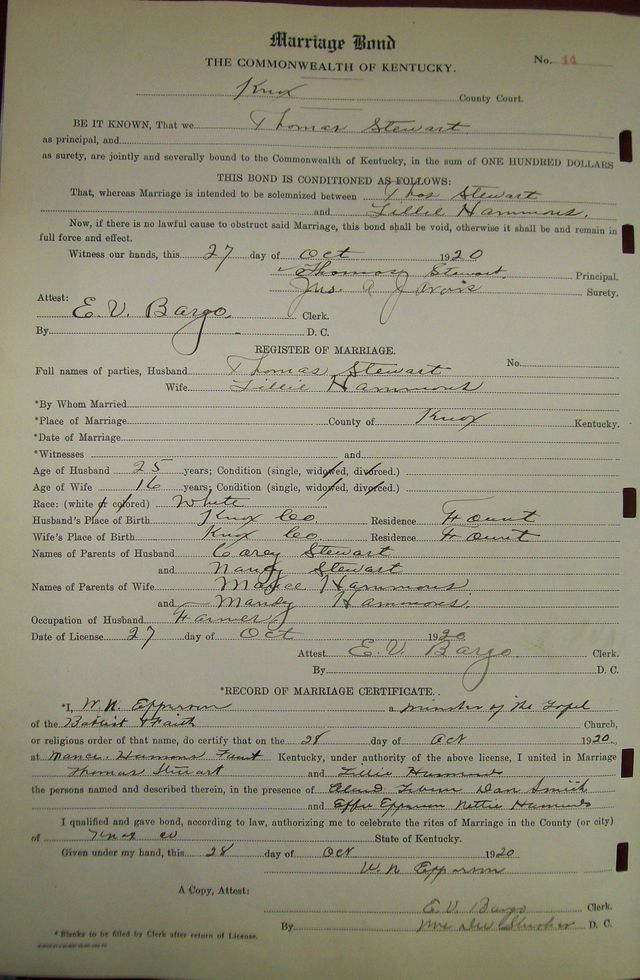 Marriage Bond
THE COMMONWEALTH OF KENTUCKY.
No. 14
Knox County Court.
BE IT KNOWN, That we Thomas Stewart
as principal, and
as surety, are jointly and severally bound to the Commonwealth of Kentucky, in the sum of ONE HUNDRED DOLLARS
THIS BOND IS CONDITIONED AS FOLLOWS:
That, whereas Marriage is intended to be solemnized between Thos Stewart
and Lillie Hammons.
Now, if there is no lawful cause to obstruct said Marriage, this bond shall be void, otherwise it shall be and remain in
full force and effect.
Witness our hands, this 27 day of Oct 1920
Thomas Stewart Principal.
Jno. Surety.
Attest:
E. V. Bargo. Clerk.
By D. C.
REGISTER OF MARRIAGE.
Full names of parties, Husband Thomas Stewart No.
Wife Lillie Hammons
*By Whom Married
*Place of Marriage County of Knox Kentucky.
*Date of Marriage
*Witnesses and
Age of Husband 25 years; Condition (single, widowed, divorced.)
Age of Wife 16 years; Condition (single, widowed, divorced.)
Race: (white or colored) White
Husband's Place of Birth Knox Co. Residence Fount
Wife's Place of Birth Knox Co. Residence Fount
Names of Parents of Husband Carey Stewart
and Nancy Stewart
Names of Parents of Wife Hammons
and Mandy Hammons.
Occupation of Husband Farmer
Date of License 27 day of Oct 1920
Attest E. V. Bargo Clerk.
By D. C.
*RECORD OF MARRIAGE CERTIFICATE.
*I, W. N. Epperson a minister of the Gospel
of the Babtist Faith Church,
or religious order of that name, do certify that on the 28 day of Oct 1920.
at Kentucky, under authority of the above license, I united in Marriage
Thomas Stewart and Lillie Hammonds
the persons named and described therein, in the presence of Dan Smith
and Effie Epperson Nettie Hammonds
I qualified and gave bond, according to law, authorizing me to celebrate the rites of Marriage in the County (or city)
of Knox co State of Kentucky.
Given under my hand, this 28 day of Oct 1920
W. N. Epperson
A Copy, Attest:
E. V. Bargo Clerk.
By D. C.
*Blanks to be filled by Clerk after return of License.